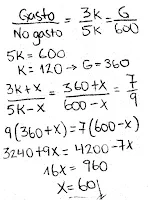 Gasto / No gasto = 3K / 5K = G / 600
5K = 600
K = 120 → G = 360
3K+x / 5K-x = 360+x / 600-x = 7 / 9
9(360+x)=7(600-x)
3240+9x = 4200-7x
16x = 960
x = 60